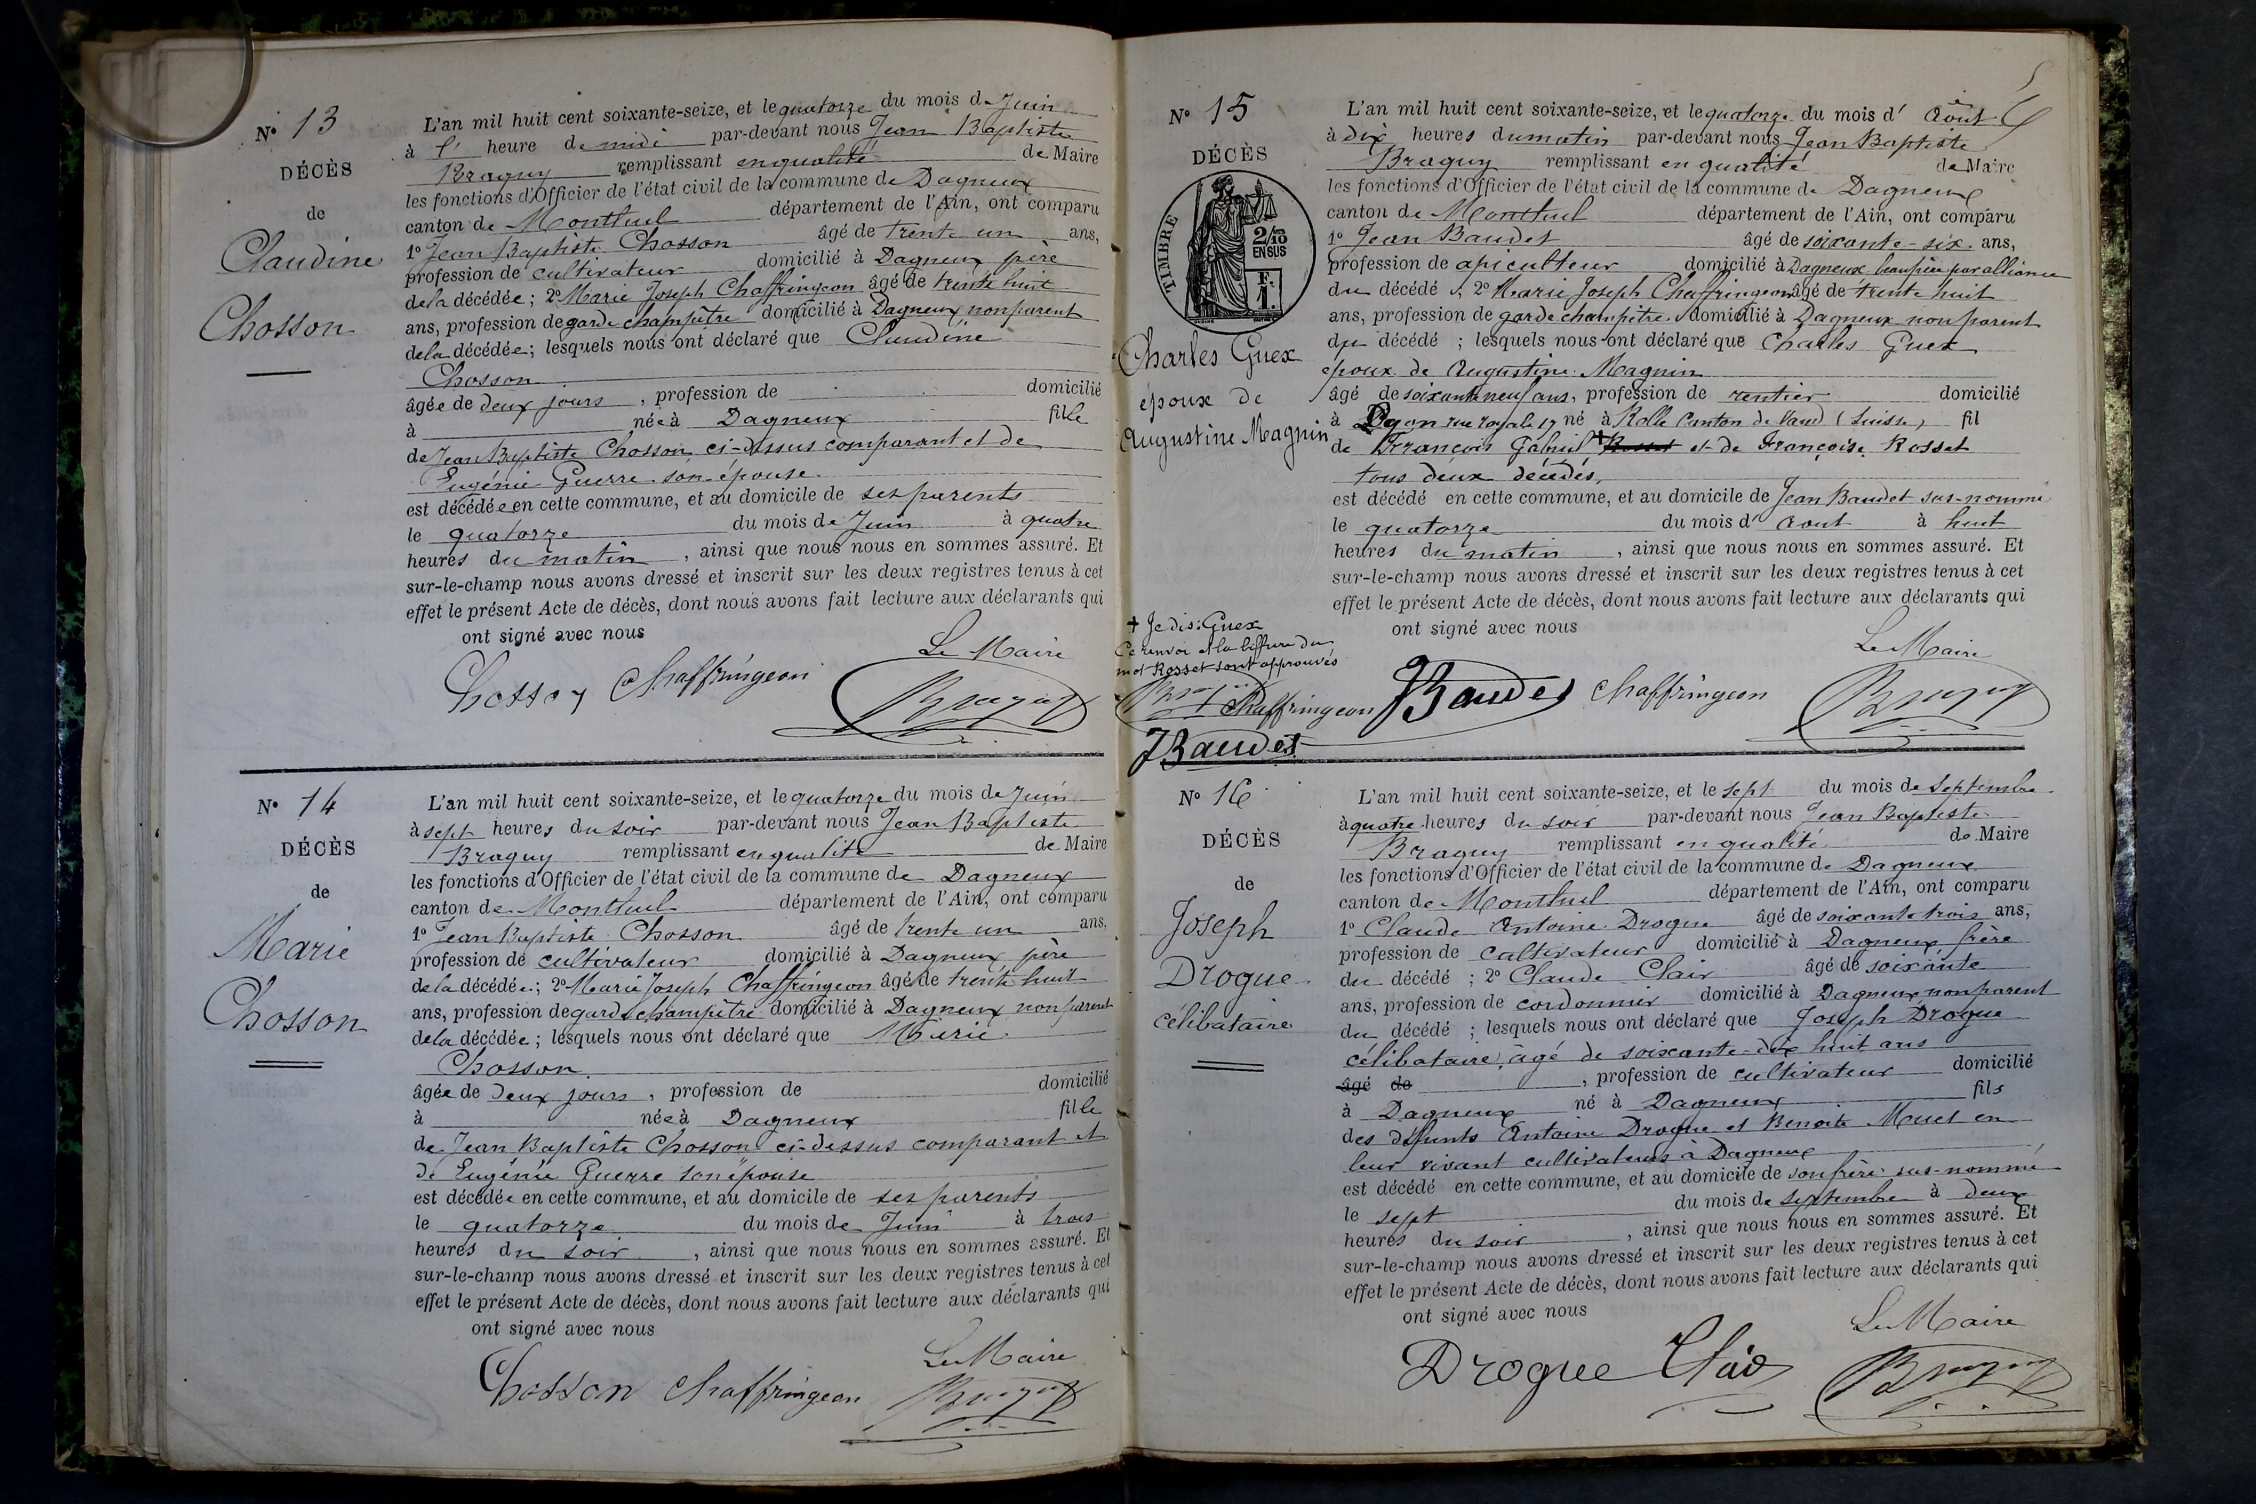 Nº 13
DÉCÈS
de
Claudine
Chosson
L'an mil huit cent soixante-seize, et le quatorze du mois de Juin
à l' heure de midi par-devant nous Jean Baptiste
Braguy remplissant en qualité de Maire
les fonctions d'Officier de l'état civil de la commune de Dagneux
canton de Montluel département de l'Ain, ont comparu
1º Jean Baptiste Chosson âgé de trente un ans,
profession de cultivateur domicilié à Dagneux père
de la décédée ; 2º Marie Joseph Chaffringeon âgé de trente huit
ans, profession de garde champêtre domicilié à Dagneux non parent
de la décédée ; lesquels nous ont déclaré que Claudine
Chosson
âgée de deux jours , profession de domicilié
à née à Dagneux fille
de Jean Baptiste Chosson ci-dessus comparant et de
Eugénie Guerre son épouse
est décédée en cette commune, et au domicile de ses parents
le quatorze du mois de Juin à quatre
heures du matin , ainsi que nous nous en sommes assuré. Et
sur-le-champ nous avons dressé et inscrit sur les deux registres tenus à cet
effet le présent Acte de décès, dont nous avons fait lecture aux déclarants qui
ont signé avec nous
Le Maire
Chosson Chaffringeon Braguy
Nº 14
DÉCÈS
de
Marie
Chosson
L'an mil huit cent soixante-seize, et le quatorze du mois de Juin
à sept heures du soir par-devant nous Jean Baptiste
Braguy remplissant en qualité de Maire
les fonctions d'Officier de l'état civil de la commune de Dagneux
canton de Montluel département de l'Ain, ont comparu
1º Jean Baptiste Chosson âgé de trente un ans,
profession de cultivateur domicilié à Dagneux père
de la décédée ; 2º Marie Joseph Chaffringeon âgé de trente huit
ans, profession de garde champêtre domicilié à Dagneux non parent
de la décédée ; lesquels nous ont déclaré que Marie
Chosson
âgée de deux jours , profession de domicilié
à née à Dagneux fille
de Jean Baptiste Chosson ci-dessus comparant et
de Eugénie Guerre son épouse
est décédée en cette commune, et au domicile de ses parents
le quatorze du mois de Juin à trois
heures du soir , ainsi que nous nous en sommes assuré. Et
sur-le-champ nous avons dressé et inscrit sur les deux registres tenus à cet
effet le présent Acte de décès, dont nous avons fait lecture aux déclarants qui
ont signé avec nous
Le Maire
Chosson Chaffringeon Braguy
Nº 15
DÉCÈS
TIMBRE
2/10
EN SUS
F.
1.
Charles Guex
époux de
Augustine Magnin
L'an mil huit cent soixante-seize, et le quatorze du mois d' Août
à dix heures du matin par-devant nous Jean Baptiste
Braguy remplissant en qualité de Maire
les fonctions d'Officier de l'état civil de la commune de Dagneux
canton de Montluel département de l'Ain, ont comparu
1º Jean Baudet âgé de soixante-six ans,
profession de apiculteur domicilié à Dagneux beau père par alliance
du décédé ; 2º Marie Joseph Chaffringeon âgé de trente huit
ans, profession de garde champêtre domicilié à Dagneux non parent
du décédé ; lesquels nous ont déclaré que Charles Guex
époux de Augustine Magnin
âgé de soixante neuf ans, profession de rentier domicilié
à Lyon rue royale 17 né à Rolle Canton de Vaud (Suisse) fil
de François Gabriel + Rosset et de Françoise Rosset
tous deux décédés,
est décédé en cette commune, et au domicile de Jean Baudet sus-nommé
le quatorze du mois d' aout à huit
heures du matin , ainsi que nous nous en sommes assuré. Et
sur-le-champ nous avons dressé et inscrit sur les deux registres tenus à cet
effet le présent Acte de décès, dont nous avons fait lecture aux déclarants qui
ont signé avec nous
Le Maire
+ Je dis : Guex
Ce renvoi et la biffure du
mot Rosset sont approuvés
Braguy Chaffringeon
JBaudet
JBaudet Chaffringeon Braguy
Nº 16
DÉCÈS
de
Joseph
Drogue
célibataire
L'an mil huit cent soixante-seize, et le sept du mois de Septembre
à quatre heures du soir par-devant nous Jean Baptiste
Braguy remplissant en qualité de Maire
les fonctions d'Officier de l'état civil de la commune de Dagneux
canton de Montluel département de l'Ain, ont comparu
1º Claude Antoine Drogue âgé de soixante trois ans,
profession de cultivateur domicilié à Dagneux frère
du décédé ; 2º Claude Clair âgé de soixante
ans, profession de cordonnier domicilié à Dagneux non parent
du décédé ; lesquels nous ont déclaré que Joseph Drogue
célibataire, âgé de soixante-dix huit ans
âgé de , profession de cultivateur domicilié
à Dagneux né à Dagneux fils
des défunts Antoine Drogue et Benoite Muet en
leur vivant cultivateurs à Dagneux
est décédé en cette commune, et au domicile de son frère sus-nommé
le sept du mois de Septembre à deux
heures du soir , ainsi que nous nous en sommes assuré. Et
sur-le-champ nous avons dressé et inscrit sur les deux registres tenus à cet
effet le présent Acte de décès, dont nous avons fait lecture aux déclarants qui
ont signé avec nous
Le Maire
Drogue Clair Braguy